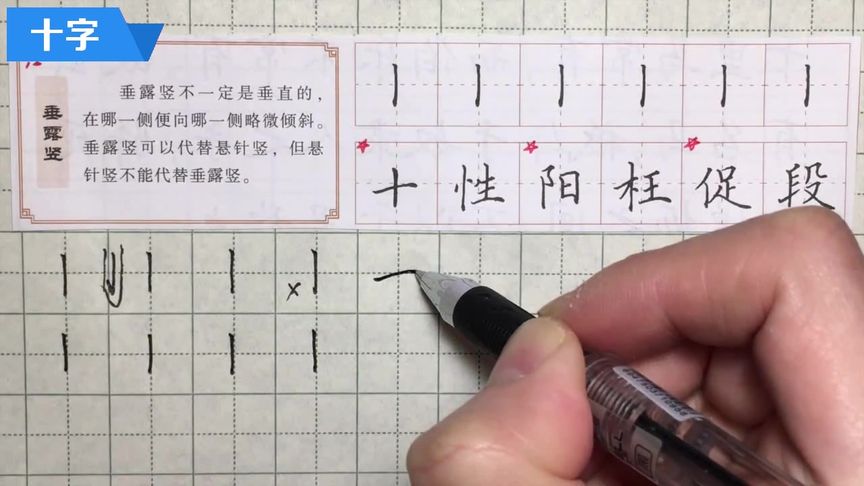 十字
垂露竖
垂露竖不一定是垂直的，
在哪一侧便向哪一侧略微倾斜。
垂露竖可以代替悬针竖，但悬
针竖不能代替垂露竖。
十性阳枉促段